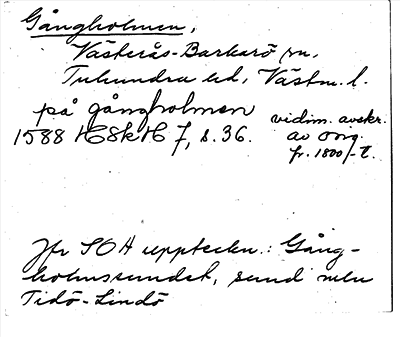 Gångholmen,
Västerås-Barkarö sn,
Tuhundra hd, Västm. l.
på gångholmen
1588 HSkH 7, s. 36. vidim. avskr.
av orig.
fr. 1800/-t.
Jfr SOA uppteckn.: Gång-
holmssundet, sund mellan
Tidö-Lindö